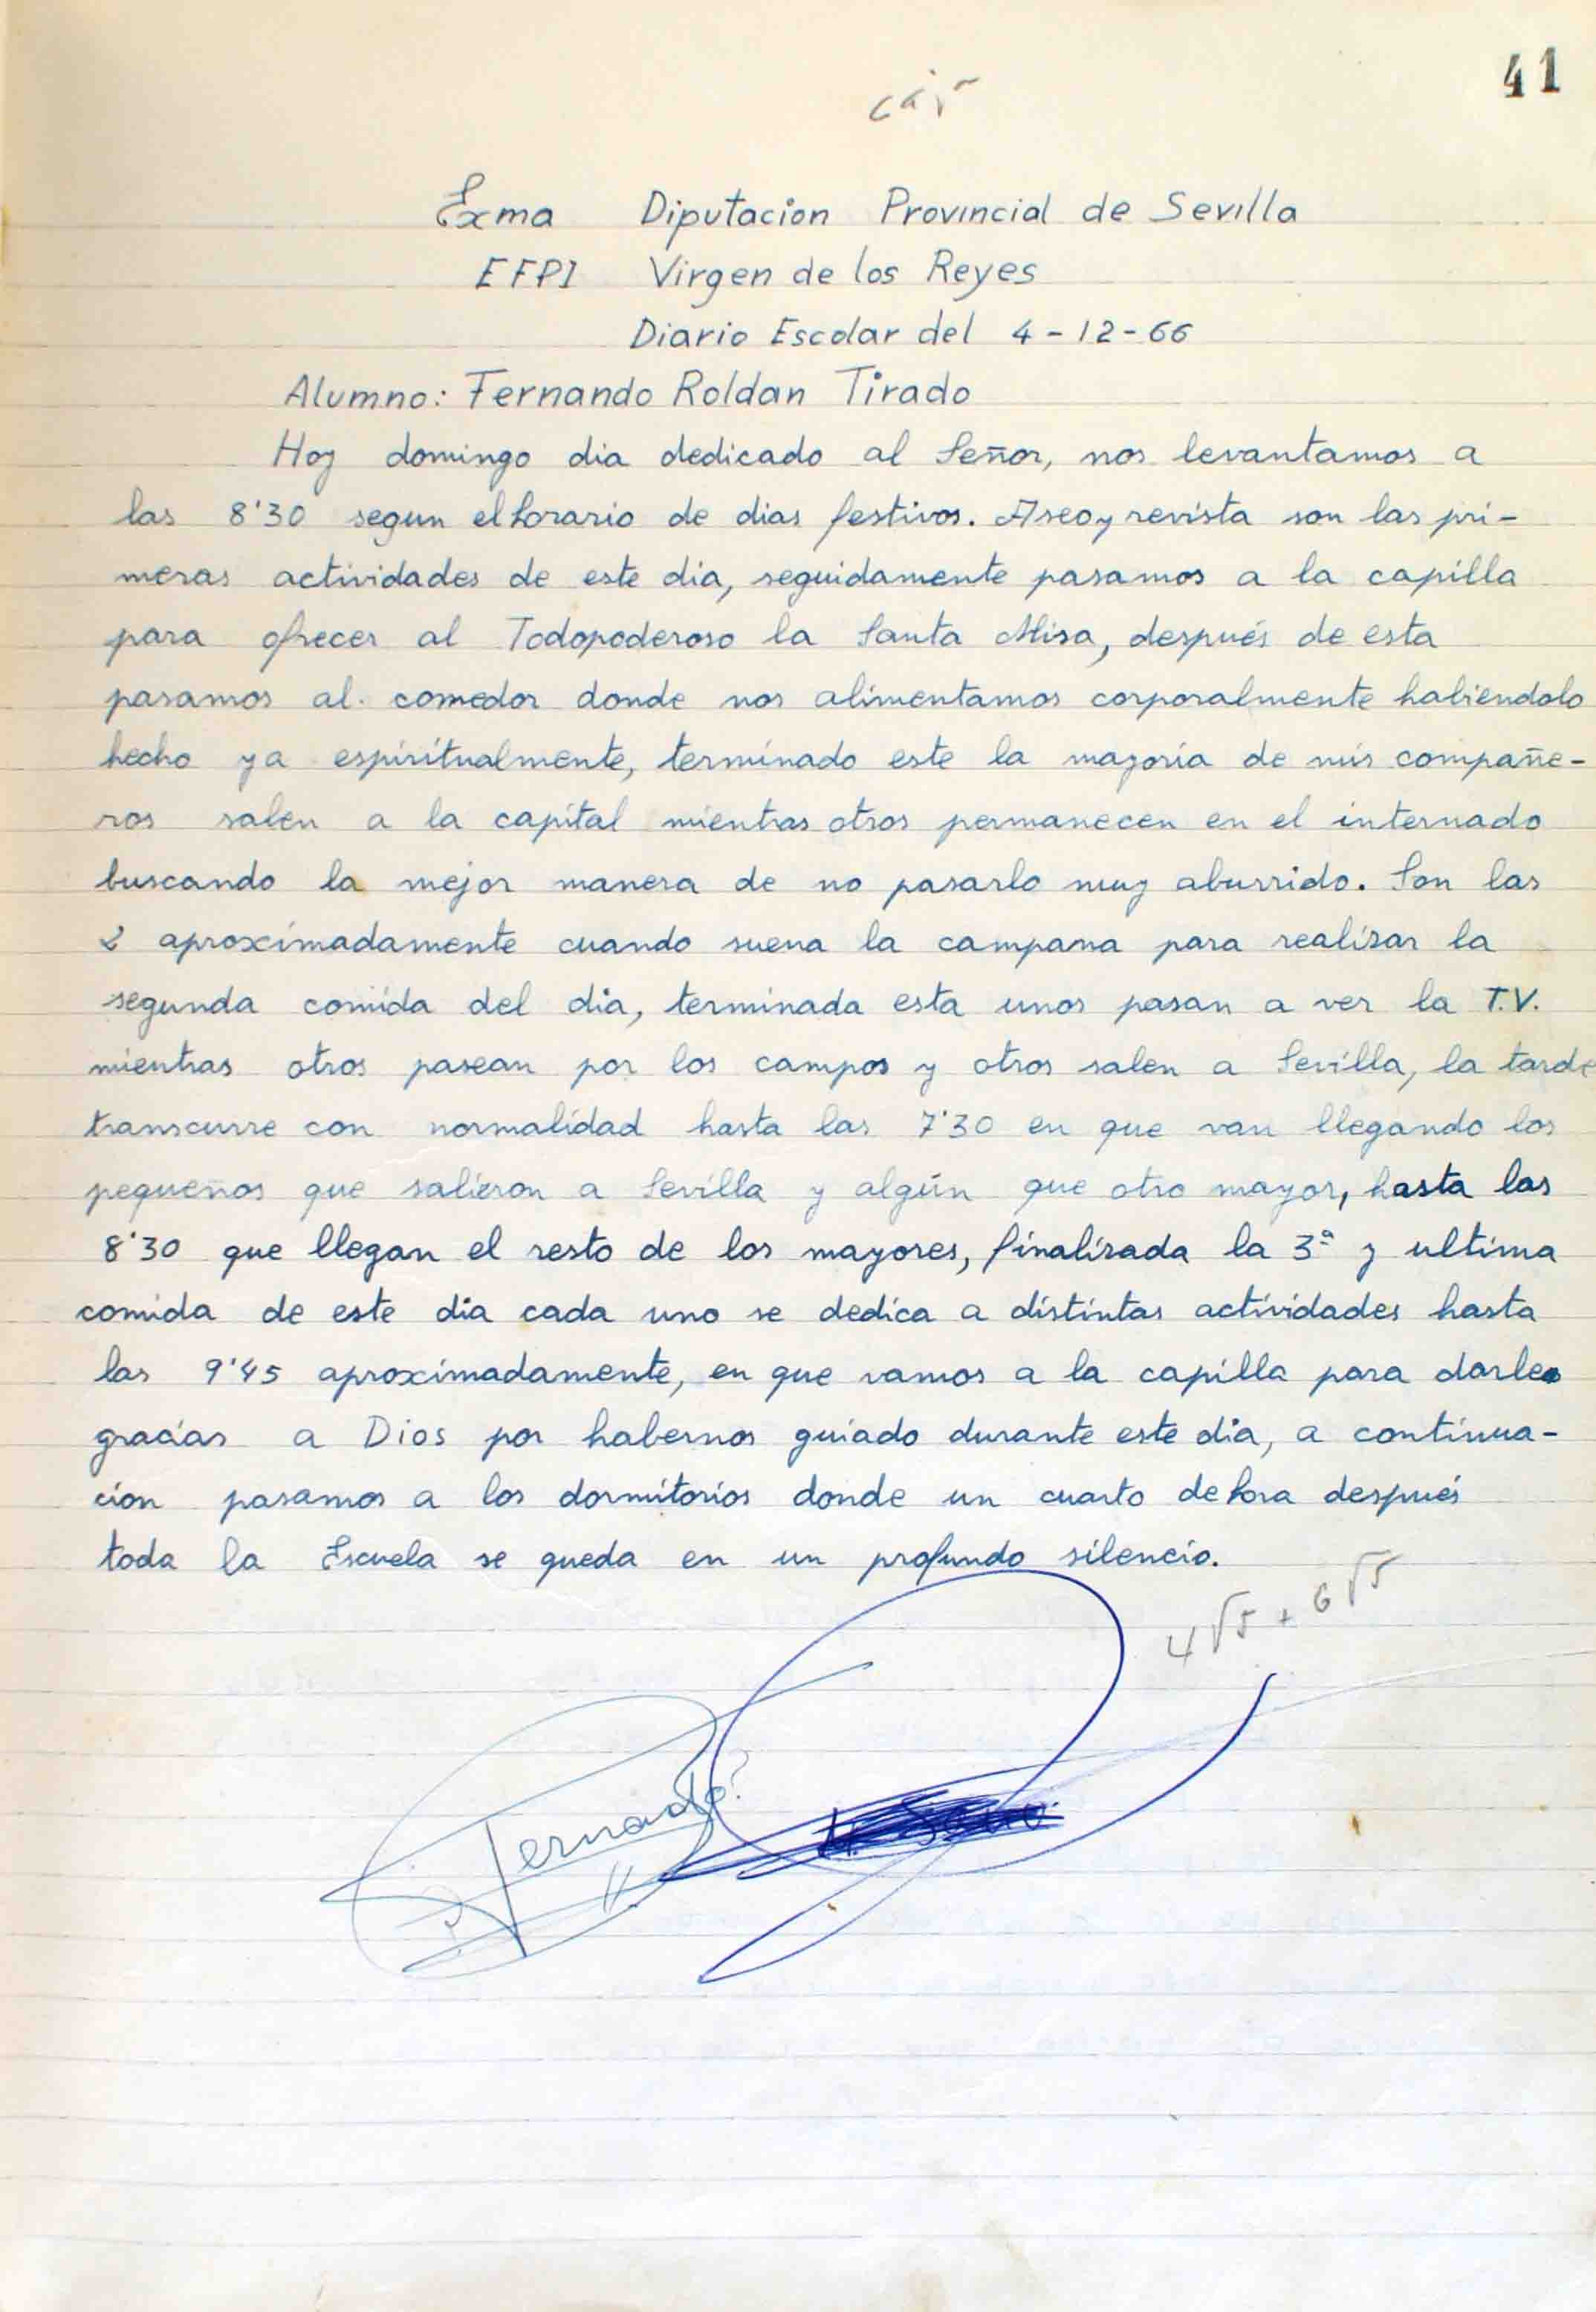 41
Exma Diputacion Provincial de Sevilla
EFPI Virgen de los Reyes
Diario Escolar del 4-12-66
Alumno: Fernando Roldan Tirado
Hoy domingo dia dedicado al Señor, nos levantamos a
las 8'30 segun el horario de dias festivos. Aseo y revista son las pri-
meras actividades de este dia, seguidamente pasamos a la capilla
para ofrecer al Todopoderoso la Santa Misa, después de esta
pasamos al comedor donde nos alimentamos corporalmente habiendolo
hecho ya espiritualmente, terminado este la mayoria de mis compañe-
ros salen a la capital mientras otros permanecen en el internado
buscando la mejor manera de no pasarlo muy aburrido. Son las
2 aproximadamente cuando suena la campana para realizar la
segunda comida del dia, terminada esta unos pasan a ver la T.V.
mientras otros pasean por los campos y otros salen a Sevilla, la tarde
transcurre con normalidad hasta las 7'30 en que van llegando los
pequeños que salieron a Sevilla y algún que otro mayor, hasta las
8'30 que llegan el resto de los mayores, finalizada la 3ª y ultima
comida de este dia cada uno se dedica a distintas actividades hasta
las 9'45 aproximadamente, en que vamos a la capilla para darle
gracias a Dios por habernos guiado durante este dia, a continua-
cion pasamos a los dormitorios donde un cuarto de hora después
toda la Escuela se queda en un profundo silencio.
4√5 + 6√5
Fernando